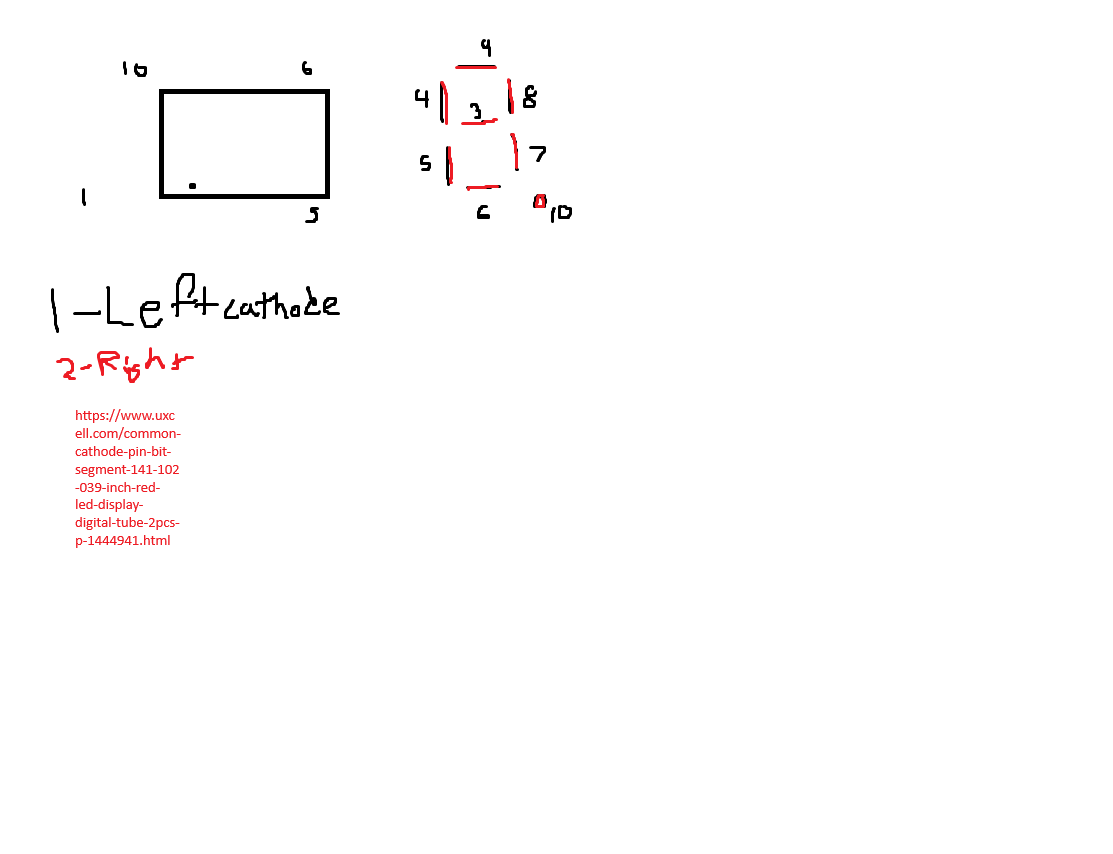 10 6
1
5
9
4 8
3
5 7
6 10
1-Left cathode
2-Right
https://www.uxc
ell.com/common-
cathode-pin-bit-
segment-141-102
-039-inch-red-
led-display-
digital-tube-2pcs-
p-1444941.html